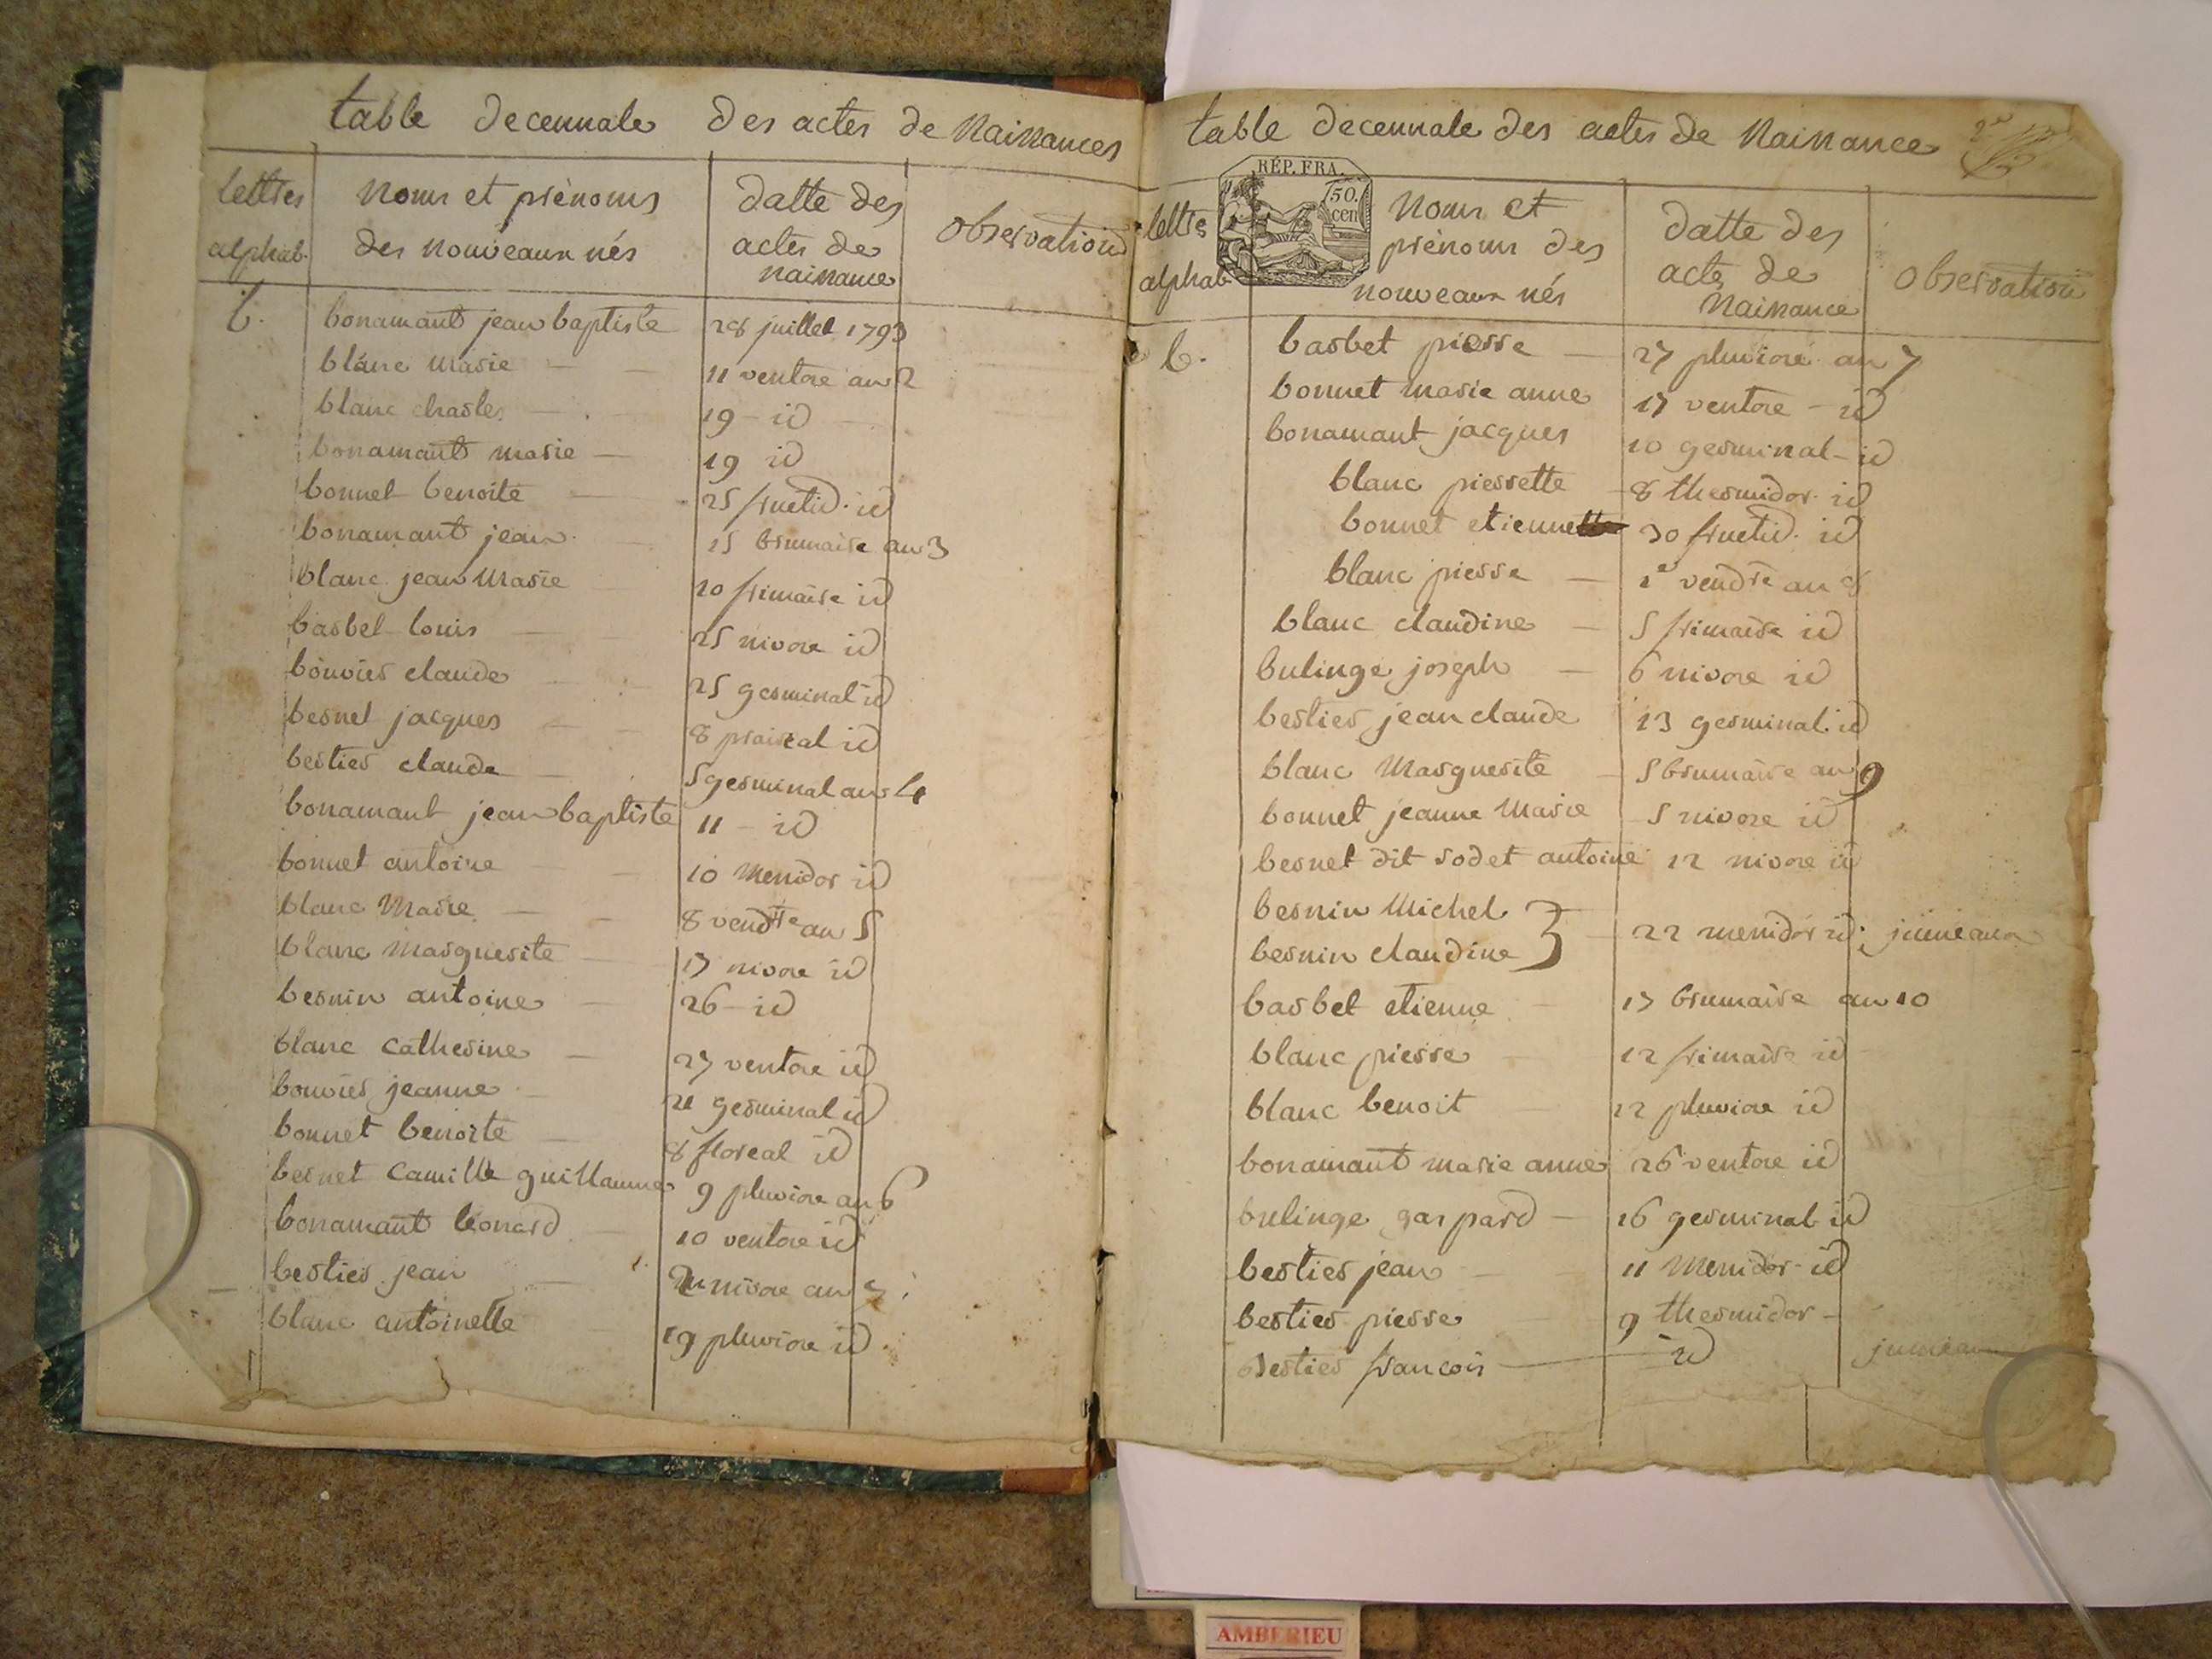 table decennale des actes de Naissances
lettres alphab.
Noms et prénoms des nouveaux nés
datte des actes de naissance
observation
b.
bonamant jean baptiste 28 juillet 1793
blanc marie 11 ventose an 2
blanc charles 19 id
bonamant marie 19 id
bonnet benoite 25 fructid. id
bonamant jean 15 brumaire an 3
blanc jean Marie 20 frimaire id
barbet louis 25 nivose id
bouvier claude 25 germinal id
bernet jacques 8 prairial id
bertier claude 5 germinal an 4
bonamant jean baptiste 11 id
bonnet antoine 10 Messidor id
blanc Marie 8 vendre an 5
blanc Marguerite 17 nivose id
bernin antoine 26 id
blanc Catherine 27 ventose id
bouvier jeanne 21 germinal id
bonnet benoite 8 floreal id
bernet Camille guillaume 9 pluviose an 6
bonamant leonard 10 ventose id
bertier jean nivose an
blanc antoinette 19 pluviose id
table decennale des actes de Naissance
RÉP. FRA.
50. cen
lettres alphab
Noms et prénoms des nouveaux nés
datte des actes de Naissance
observation
b.
barbet pierre 27 pluviose an 7
bonnet marie anne 17 ventose id
bonamant jacques 10 germinal id
blanc pierrette 8 thermidor id
bonnet etienne 30 fructid. id
blanc pierre 1e vendre an 8
blanc claudine 5 frimaire id
bulinge joseph 6 nivose id
bertier jean claude 13 germinal id
blanc Marguerite 5 brumaire an 9
bonnet jeanne Marie 5 nivose id
bernet dit sodet antoine 12 nivose id
bernin Michel
22 messidor id. jumeaux
bernin claudine
barbet etienne 17 brumaire an 10
blanc pierre 12 frimaire id
blanc benoit 12 pluviose id
bonamant marie anne 26 ventose id
bulinge gaspard 16 germinal id
bertier jean 11 Messidor id
bertier pierre 9 thermidor
bertier francois id jumeaux
AMBERIEU